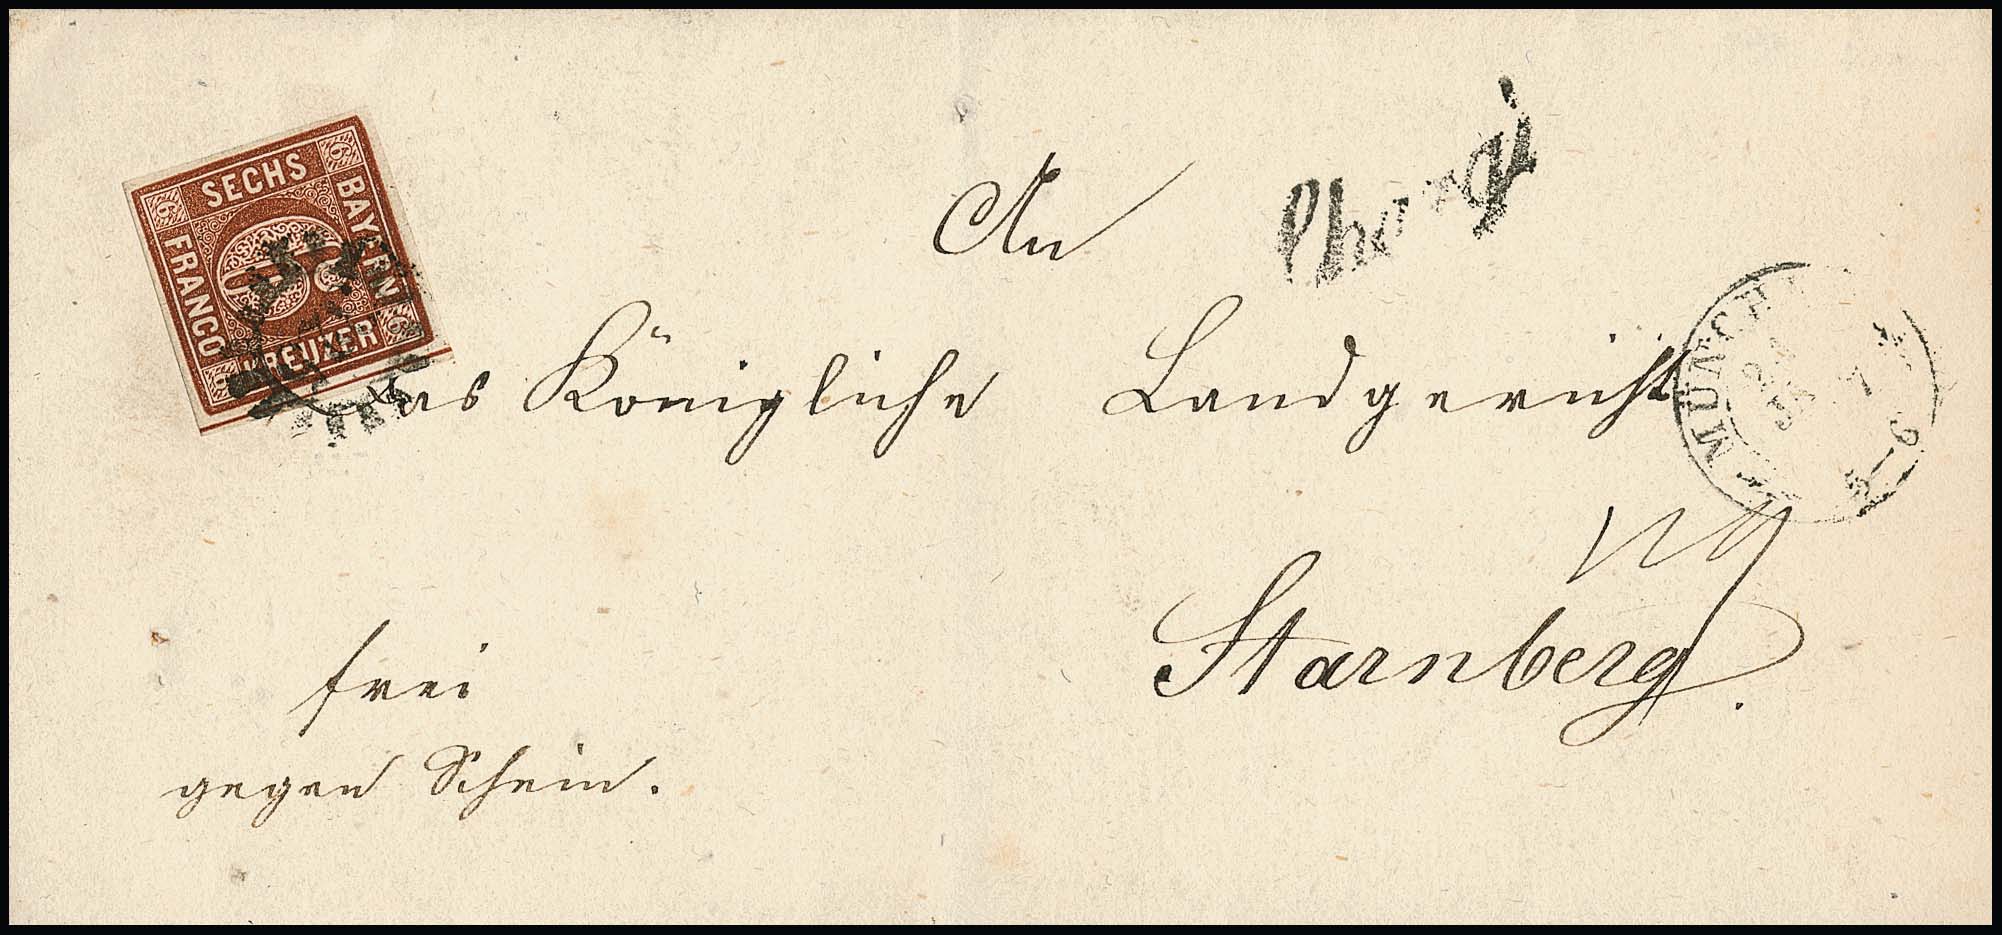 SECHS
BAYERN
FRANCO
KREUZER
6
6
6
6
6
An
Chargé
das Königliche Landgericht
MÜNCHEN
Starnberg.
frei
gegen Schein.